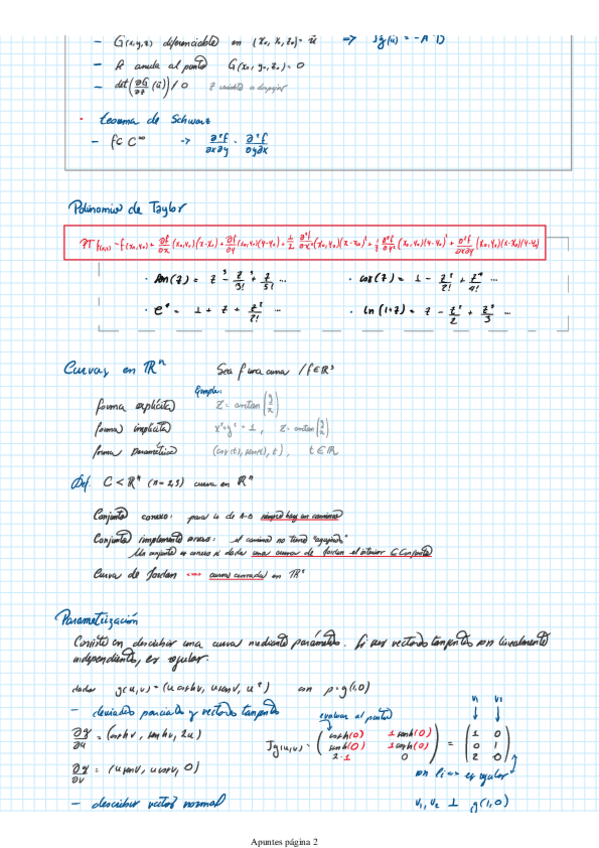 – G(x,y,z) diferenciable en (x₀, y₀, z₀) = ū → Jg(ū) = -A⁻¹D
– R anula al punto G(x₀, y₀, z₀) = 0
– det(∂G/∂z (ū)) ≠ 0 z variable a despejar
· teorema de Schwarz
– f ∈ C^∞ → ∂²f/∂x∂y = ∂²f/∂y∂x
Polinomio de Taylor
PT f(x,y) = f(x₀,y₀) + ∂f/∂x (x₀,y₀)(x-x₀) + ∂f/∂y (x₀,y₀)(y-y₀) + 1/2 ∂²f/∂x² (x₀,y₀)(x-x₀)² + 1/2 ∂²f/∂y² (x₀,y₀)(y-y₀)² + ∂²f/∂x∂y (x₀,y₀)(x-x₀)(y-y₀)
· sen(z) = z - z³/3! + z⁵/5! ... · cos(z) = 1 - z²/2! + z⁴/4! ...
· e^z = 1 + z + z²/2! ... · ln(1+z) = z - z²/2 + z³/3 ...
Curvas en ℝⁿ Sea f una curva / f ∈ ℝ³
Ejemplo:
forma explícita z = arctan(y/x)
forma implícita x²+y² = 1, z = arctan(y/x)
forma paramétrica (cos(t), sen(t), t), t ∈ ℝ
Def. C ⊂ ℝⁿ (n = 2,3) curva en ℝⁿ
Conjunto conexo: para ir de A-B siempre hay un camino
Conjunto simplemente conexo: el camino no tiene "agujeros"
Un conjunto es conexo si dada una curva de Jordan el interior ⊂ Conjunto
Curva de Jordan ↔ curva cerrada en ℝ²
Parametrización
Consiste en describir una curva mediante parámetros. Si sus vectores tangentes son linealmente
independientes, es regular.
dada g(u,v) = (u coshv, u senhv, u²) con p = g(1,0)
– derivadas parciales y vectores tangentes
evaluar al punto
v₁ v₂
∂g/∂u = (coshv, senhv, 2u)
Jg(u,v) = (cosh(0) 1 senh(0) / senh(0) 1 cosh(0) / 2·1 0) = (1 0 / 0 1 / 2 0)
∂g/∂v = (u senhv, u coshv, 0)
son li así es regular
– describir vector normal v₁, v₂ ⊥ g(1,0)
Apuntes página 2